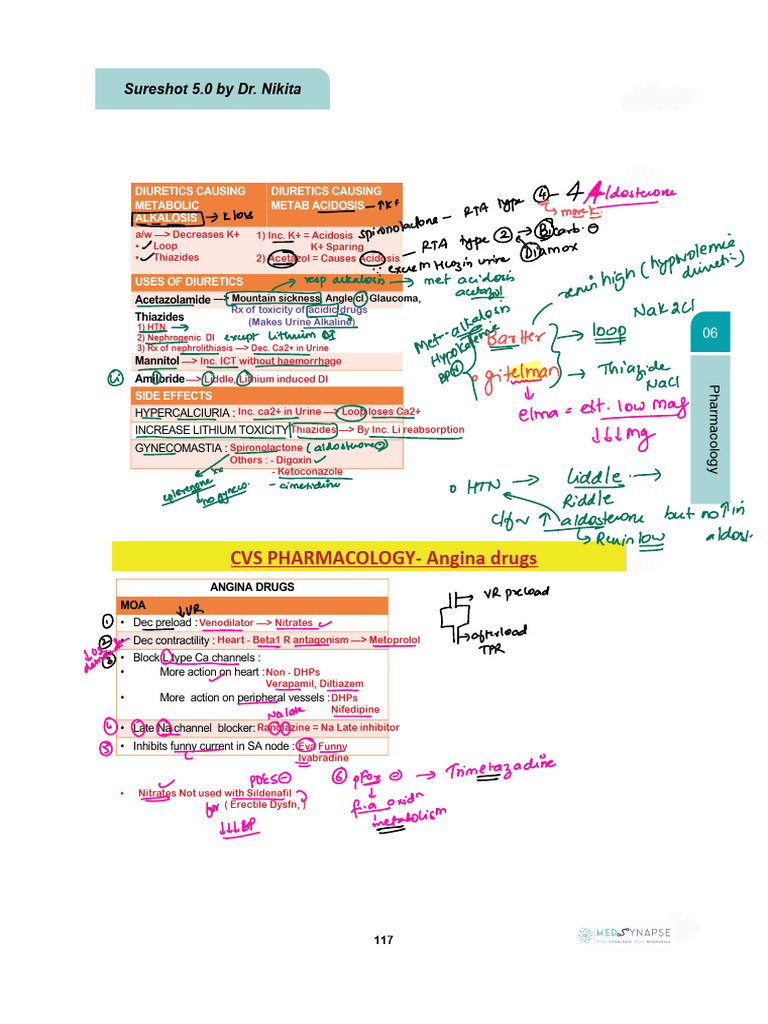 Sureshot 5.0 by Dr. Nikita
DIURETICS CAUSING METABOLIC ALKALOSIS → K low
DIURETICS CAUSING METAB ACIDOSIS – ↑K+
a/w —> Decreases K+
• Loop
• Thiazides
1) Inc. K+ = Acidosis
K+ Sparing
2) Acetazol = Causes Acidosis
spironolactone – RTA type 4 – 4 Aldosterone
more K
RTA type 2 → Bicarb. ⊖
Diamox
excrem HCO3 in urine
USES OF DIURETICS
resp alkalosis → met acidosis
acetazol
Acetazolamide —> Mountain sickness, Angle cl. Glaucoma,
Rx of toxicity of acidic drugs
(Makes Urine Alkaline)
Thiazides
1) HTN
2) Nephrogenic DI except Lithium DI
3) Rx of nephrolithiasis —> Dec. Ca2+ in Urine
Mannitol —> Inc. ICT without haemorrhage
Li Amiloride —> Liddle, Lithium induced DI
SIDE EFFECTS
HYPERCALCIURIA : Inc. ca2+ in Urine —> Loop loses Ca2+
INCREASE LITHIUM TOXICITY Thiazides —> By Inc. Li reabsorption
GYNECOMASTIA : Spironolactone (aldosterone
Others : - Digoxin
- Ketoconazole
- cimetidine
eplerenone
no gyneco.
renin high (hypovolemia
diuretic)
Met-alkalosis
Hypokalemia
BP N
Bartter → loop
Nak2Cl
gitelman → Thiazide
NaCl
elma = ext. low mag
↓↓↓ mg
HTN → Liddle →
Riddle
c/f ~ ↑ aldosterone but no ↑ in
aldost.
→ Renin low
06
Pharmacology
CVS PHARMACOLOGY- Angina drugs
ANGINA DRUGS
MOA
↓VR
1 • Dec preload : Venodilator —> Nitrates
2 • Dec contractility : Heart - Beta1 R antagonism —> Metoprolol
3 • Block L type Ca channels :
• More action on heart : Non - DHPs
Verapamil, Diltiazem
• More action on peripheral vessels : DHPs
Nifedipine
Na late
4 • Late Na channel blocker: Ranolazine = Na Late inhibitor
5 • Inhibits funny current in SA node : Eva Funny
Ivabradine
VR preload
afterload
TPR
PDE5 ⊖
• Nitrates Not used with Sildenafil
for ( Erectile Dysfn, )
↓↓↓BP
6 pFox ⊖ → Trimetazadine
f.a oxidn
metabolism
117
MEDSYNAPSE